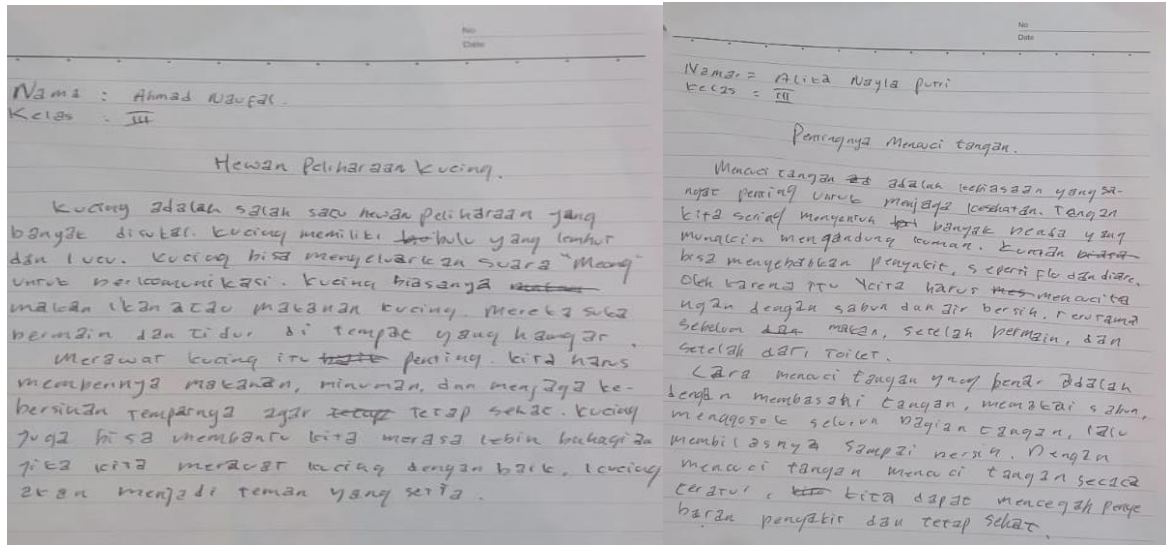 No
Date
Nama : Ahmad Naufal.
Kelas : III
Hewan Peliharaan Kucing.
Kucing adalah salah satu hewan peliharaan yang
banyak disukai. Kucing memiliki bulu yang lembut
dan lucu. Kucing bisa mengeluarkan suara "Meong"
untuk berkomunikasi. Kucing biasanya
makan ikan atau makanan kucing. Mereka suka
bermain dan tidur di tempat yang hangar.
Merawat kucing itu penting. Kita harus
memberinya makanan, minuman, dan menjaga ke-
bersihan tempatnya agar tetap sehat. Kucing
juga bisa membantu kita merasa lebih bahagia
jika kita merawat kucing dengan baik, kucing
akan menjadi teman yang setia.
No
Date
Nama = Alika Nayla Putri
Kelas = III
Pentingnya Mencuci tangan.
Mencuci tangan adalah kebiasaan yang sa-
ngat penting untuk menjaga kesehatan. Tangan
kita sering menyentuh banyak benda yang
mungkin mengandung kuman. Kuman
bisa menyebabkan penyakit, seperti flu dan diare.
Oleh karena itu kita harus mencuci ta
ngan dengan sabun dan air bersih, terutama
sebelum makan, setelah bermain, dan
setelah dari toilet.
Cara mencuci tangan yang benar adalah
dengan membasahi tangan, memakai sabun,
menggosok seluruh bagian tangan, lalu
membilasnya sampai bersih. Dengan
mencuci tangan mencuci tangan secara
teratur, kita dapat mencegah penye
baran penyakit dan tetap sehat.